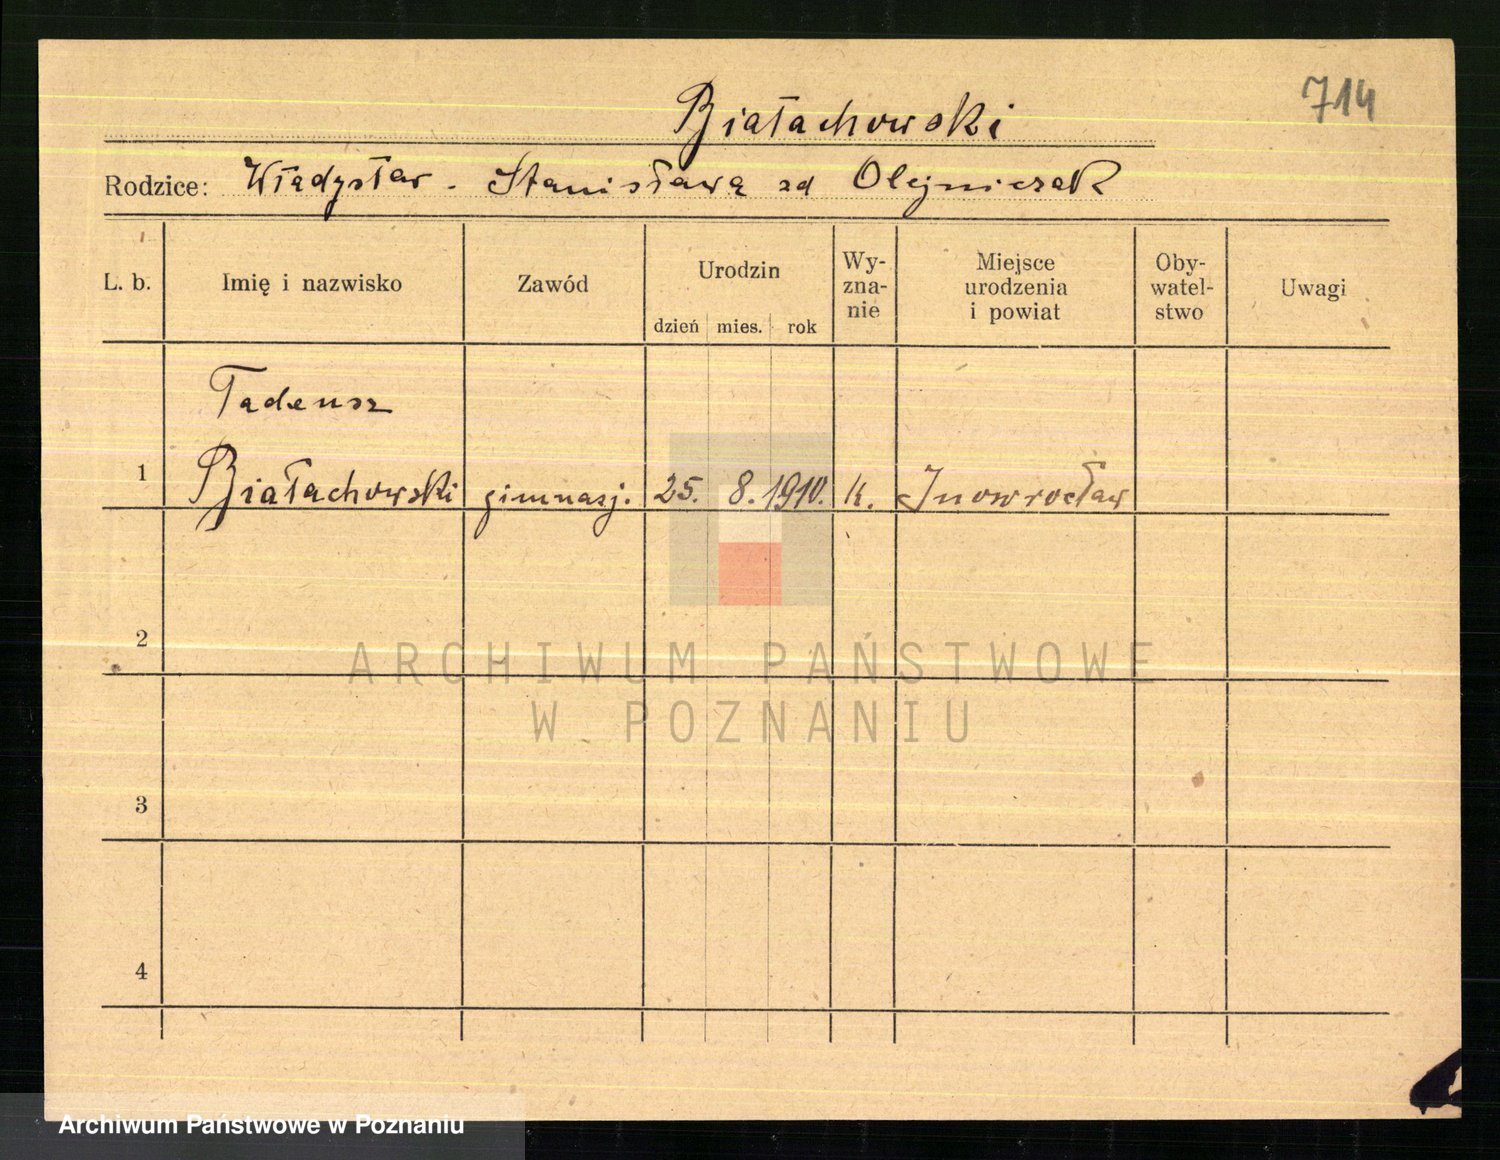 714
Białachowski
Rodzice: Władysław - Stanisława zd Olejniczak
L. b. Imię i nazwisko Zawód Urodzin dzień mies. rok Wy-zna-nie Miejsce urodzenia i powiat Oby-watel-stwo Uwagi
Tadeusz
1 Białachowski gimnazj. 25. 8. 1910. k. Inowrocław
2
ARCHIWUM PAŃSTWOWE
W POZNANIU
3
4
Archiwum Państwowe w Poznaniu